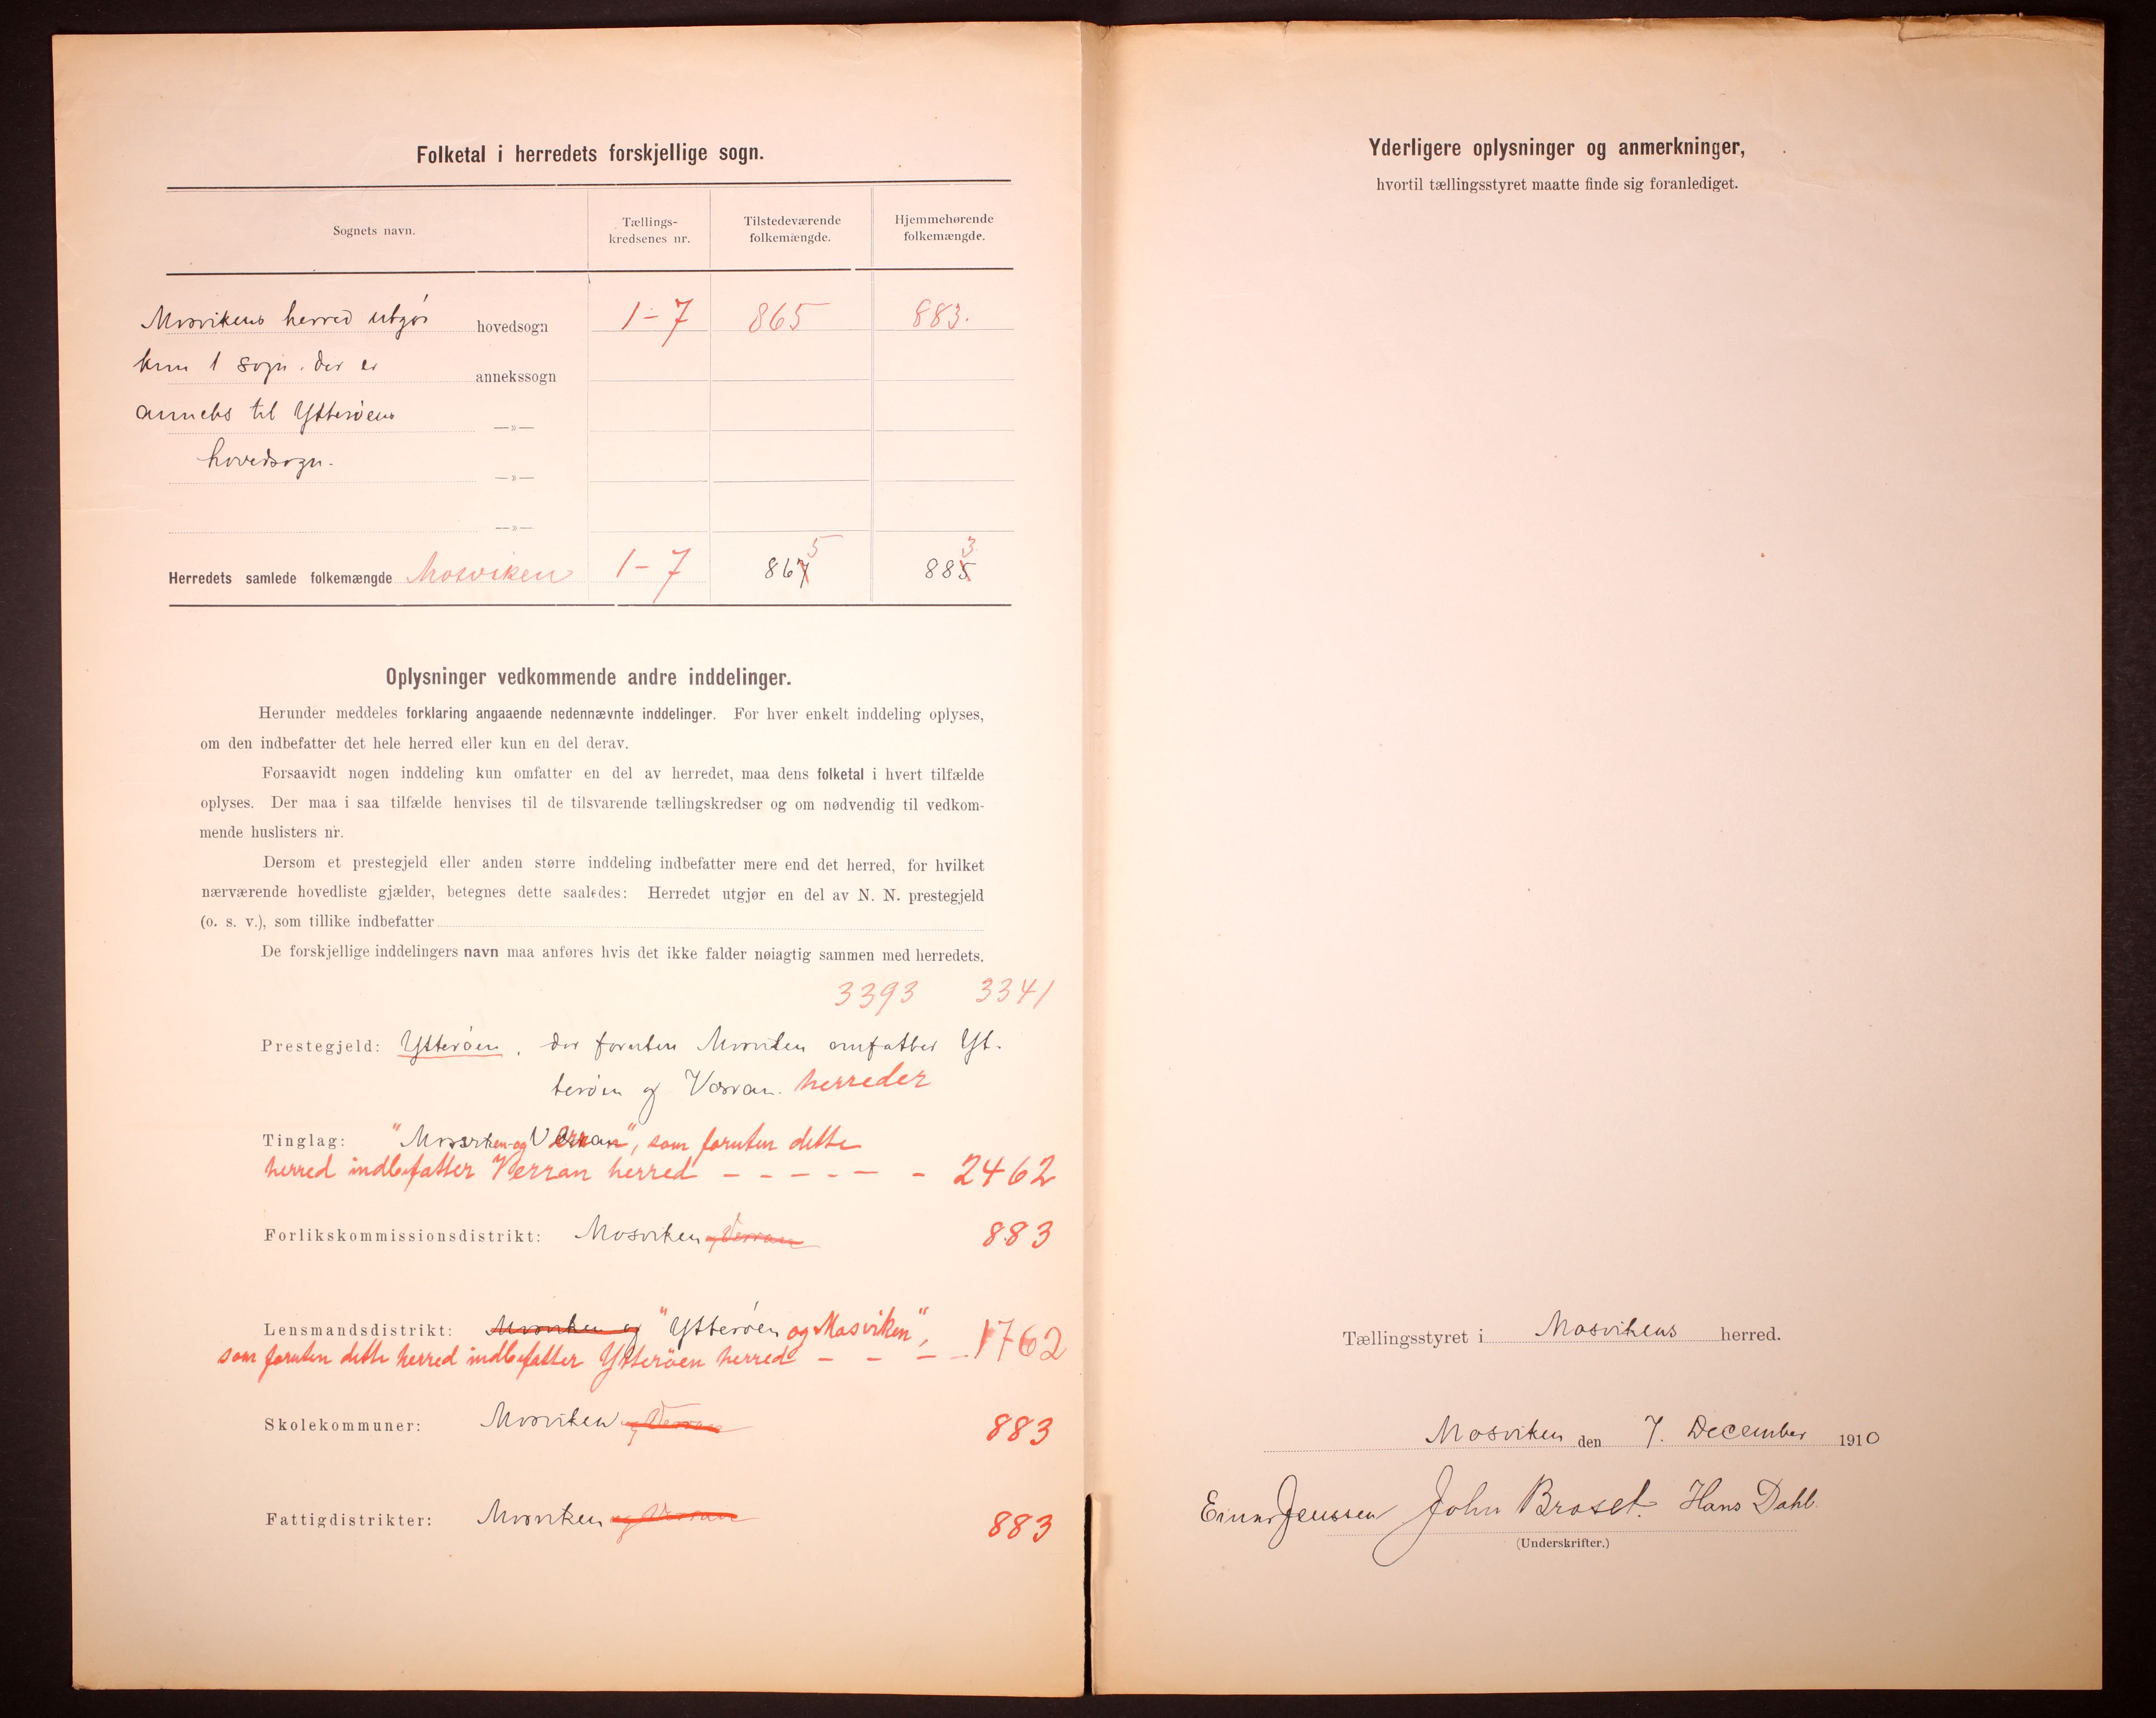 Folketal i herredets forskjellige sogn.
Sognets navn.
Tællings-
kredsenes nr.
Tilstedeværende
folkemængde.
Hjemmehørende
folkemængde.
Mosvikens herred utgjør hovedsogn 1-7 865 883.
kun 1 sogn. der er annekssogn
anneks til Ytterøens —»—
hovedsogn. —»—
—»—
Herredets samlede folkemængde Mosviken 1-7 867 5 885 3
Oplysninger vedkommende andre inddelinger.
Herunder meddeles forklaring angaaende nedennævnte inddelinger. For hver enkelt inddeling oplyses,
om den indbefatter det hele herred eller kun en del derav.
Forsaavidt nogen inddeling kun omfatter en del av herredet, maa dens folketal i hvert tilfælde
oplyses. Der maa i saa tilfælde henvises til de tilsvarende tællingskredser og om nødvendig til vedkom-
mende huslisters nr.
Dersom et prestegjeld eller anden større inddeling indbefatter mere end det herred, for hvilket
nærværende hovedliste gjælder, betegnes dette saaledes: Herredet utgjør en del av N. N. prestegjeld
(o. s. v.), som tillike indbefatter
De forskjellige inddelingers navn maa anføres hvis det ikke falder nøiagtig sammen med herredets.
3393 3341
Prestegjeld: Ytterøen, der foruten Mosviken omfatter Yt-
terøen og Værran. herreder
Tinglag: "Mosviken og Verran", som foruten dette
herred indbefatter Verran herred - - - - - - 2462
Forlikskommissionsdistrikt: Mosviken og Verran 883
Lensmandsdistrikt: Mosviken og "Ytterøen og Mosviken",
som foruten dette herred indbefatter Ytterøen herred - - - - 1762
Skolekommuner: Mosviken og Verran 883
Fattigdistrikter: Mosviken og Verran 883
Yderligere oplysninger og anmerkninger,
hvortil tællingsstyret maatte finde sig foranlediget.
Tællingsstyret i Mosvikens herred.
Mosviken den 7. December 1910
Einar Jenssen John Braset. Hans Dahl.
(Underskrifter.)